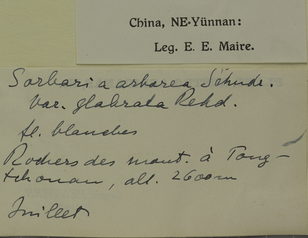 China, NE-Yünnan:
Leg. E. E. Maire.
Sorbaria arborea Schndr.
var. glabrata Rehd.
fl. blanches
Rochers des mont. à Tong-
tchouan, alt. 2600m
Juillet